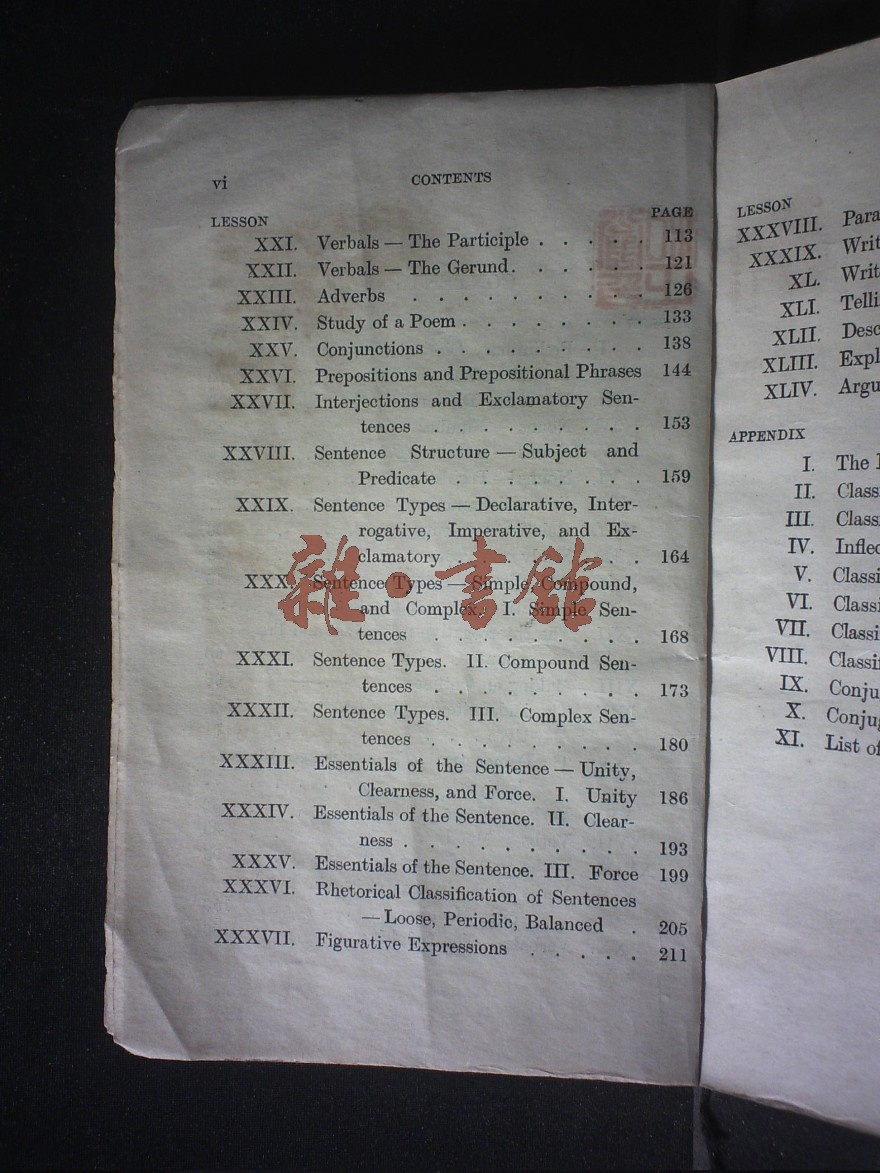 vi
CONTENTS
LESSON PAGE
XXI. Verbals — The Participle . . . . . 113
XXII. Verbals — The Gerund . . . . . . 121
XXIII. Adverbs . . . . . . . . . . 126
XXIV. Study of a Poem . . . . . . . . 133
XXV. Conjunctions . . . . . . . . . 138
XXVI. Prepositions and Prepositional Phrases 144
XXVII. Interjections and Exclamatory Sen-
tences . . . . . . . . . 153
XXVIII. Sentence Structure — Subject and
Predicate . . . . . . . . 159
XXIX. Sentence Types — Declarative, Inter-
rogative, Imperative, and Ex-
clamatory . . . . . . . . 164
XXX. Sentence Types — Simple, Compound,
and Complex. I. Simple Sen-
tences . . . . . . . . . 168
XXXI. Sentence Types. II. Compound Sen-
tences . . . . . . . . . 173
XXXII. Sentence Types. III. Complex Sen-
tences . . . . . . . . . 180
XXXIII. Essentials of the Sentence — Unity,
Clearness, and Force. I. Unity 186
XXXIV. Essentials of the Sentence. II. Clear-
ness . . . . . . . . . . 193
XXXV. Essentials of the Sentence. III. Force 199
XXXVI. Rhetorical Classification of Sentences
— Loose, Periodic, Balanced . 205
XXXVII. Figurative Expressions . . . . . 211
雜·書館
LESSON
XXXVIII. Para
XXXIX. Writ
XL. Writ
XLI. Telli
XLII. Desc
XLIII. Expl
XLIV. Argu
APPENDIX
I. The
II. Class
III. Class
IV. Inflec
V. Classi
VI. Classi
VII. Classi
VIII. Classi
IX. Conju
X. Conjug
XI. List of